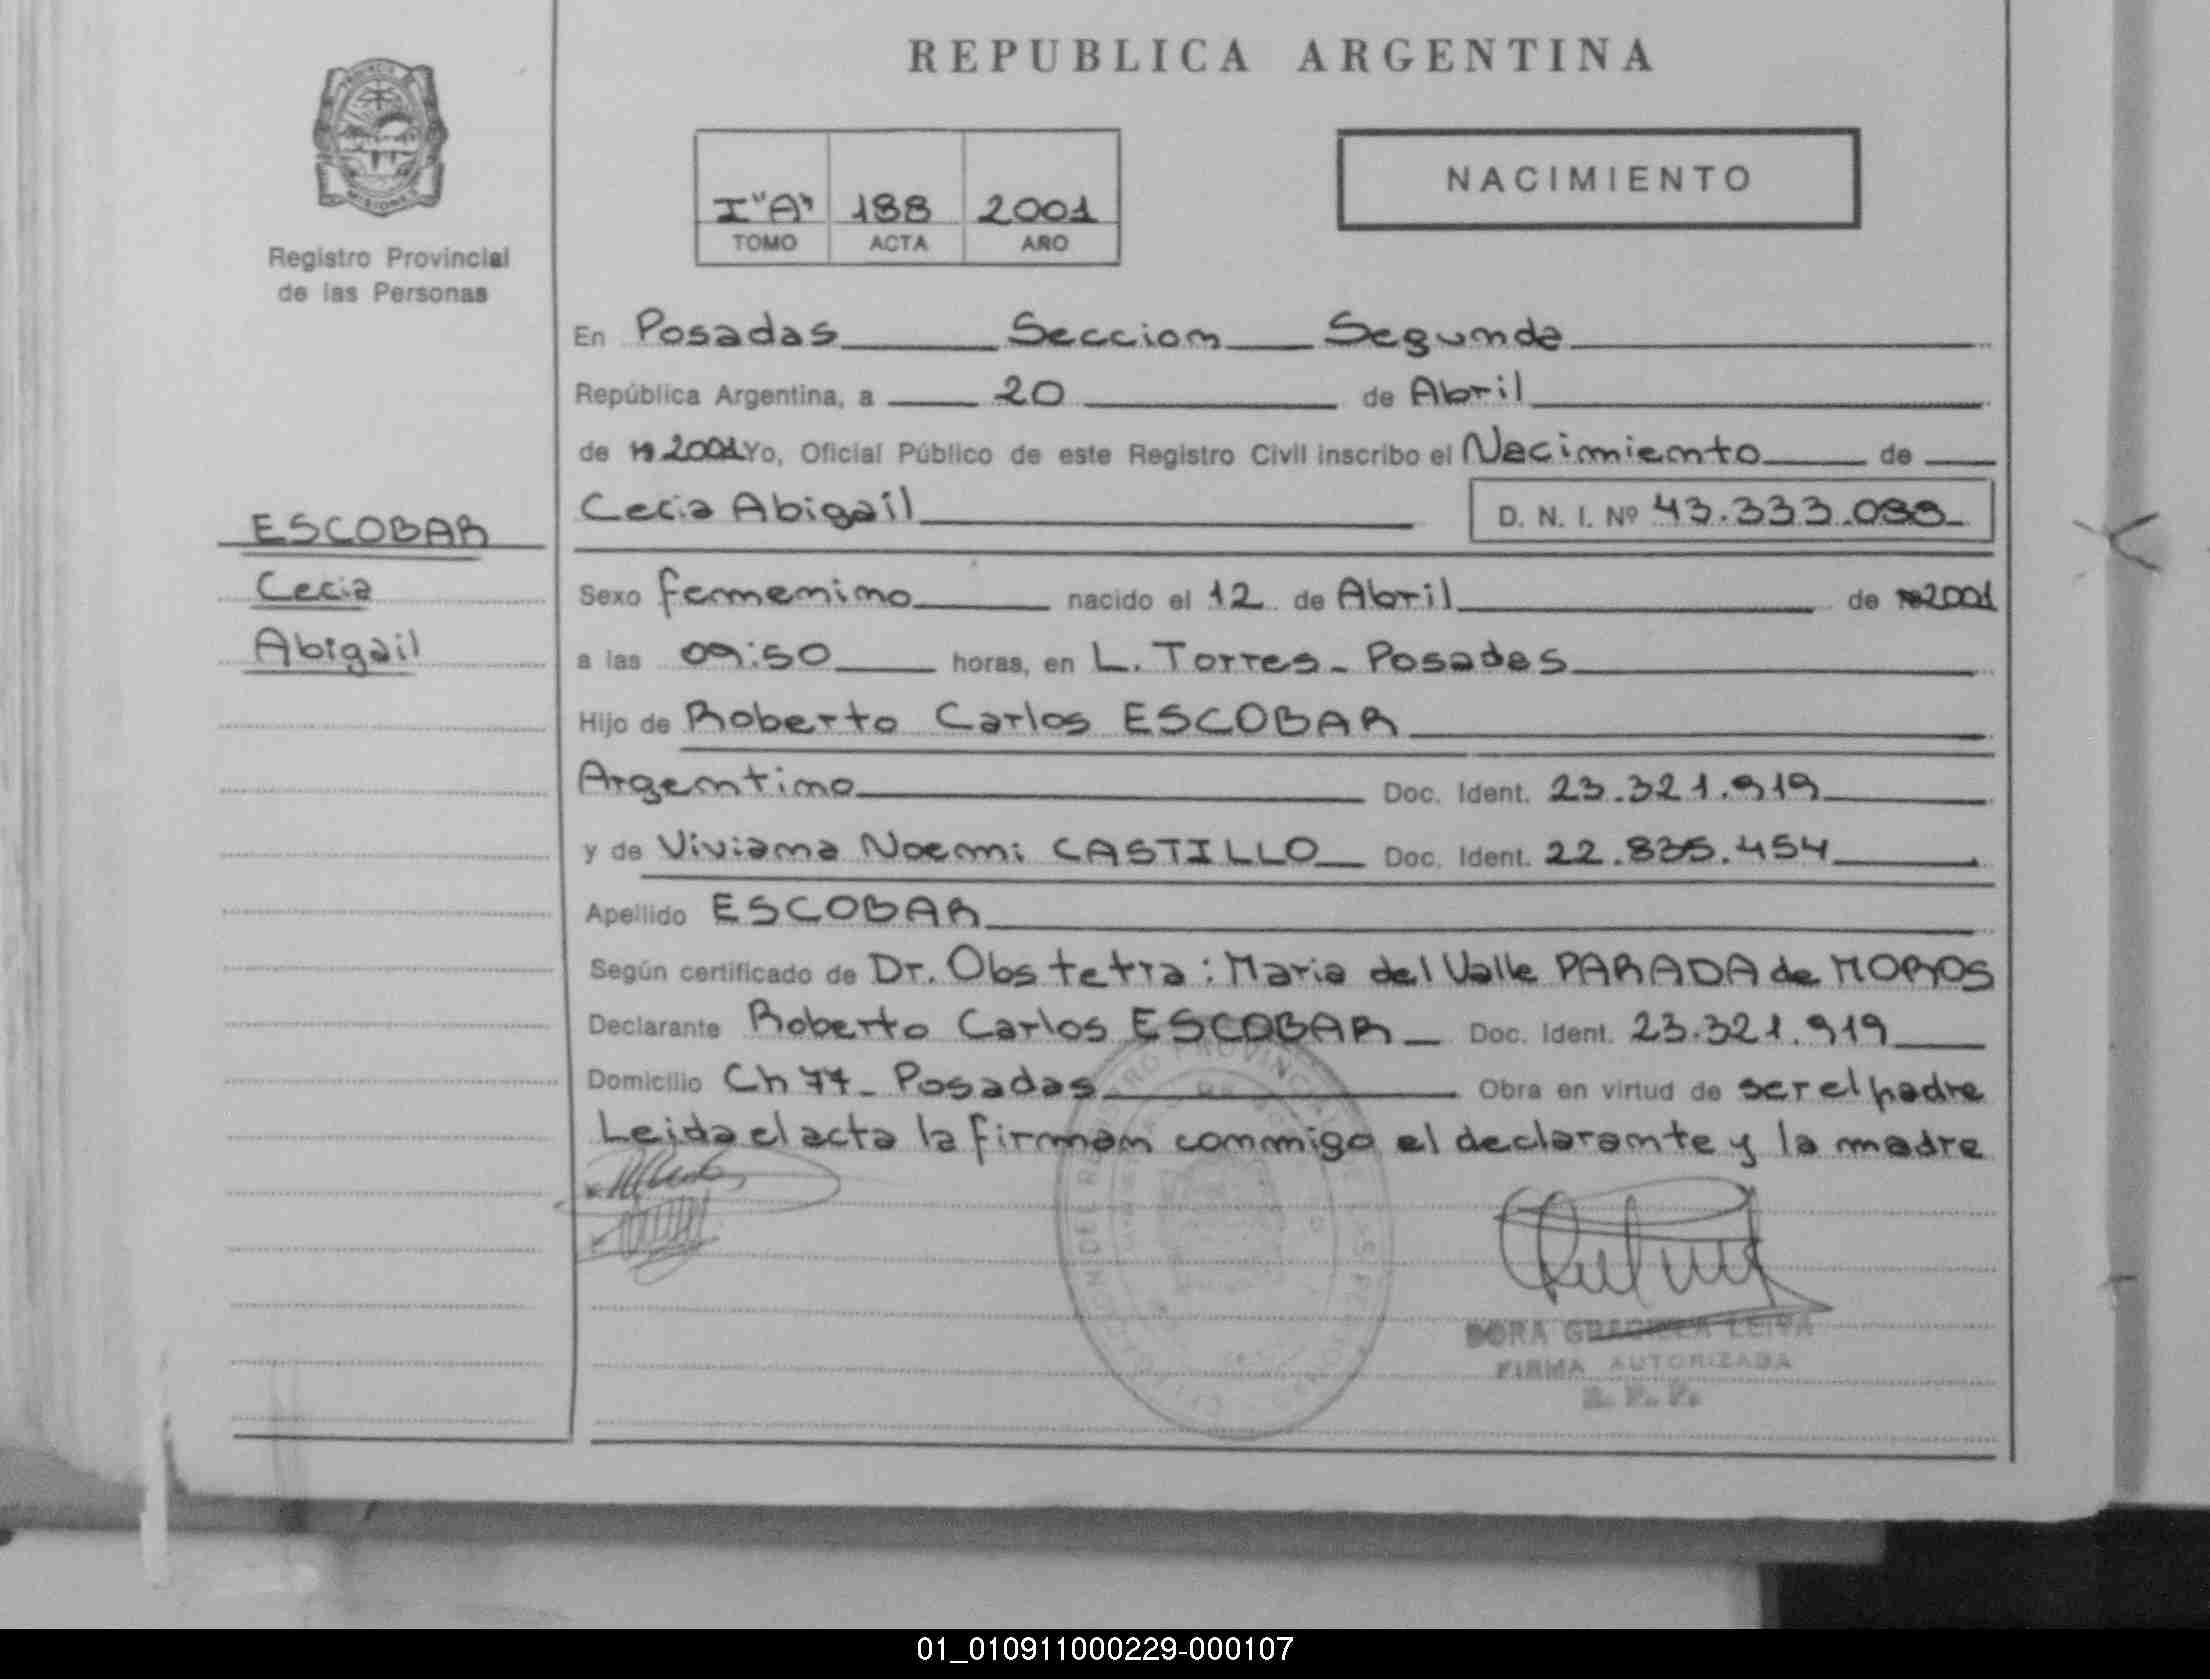 REPUBLICA ARGENTINA
PROVINCIA
MISIONES
Registro Provincial
de las Personas
I "A" 188 2001
TOMO ACTA AÑO
NACIMIENTO
En Posadas Seccion Segunda
República Argentina, a 20 de Abril
de 19 2001 Yo, Oficial Público de este Registro Civil inscribo el Nacimiento de
Cecia Abigaíl D. N. I. Nº 43.333.088
ESCOBAR
Cecia
Abigail
Sexo femenino nacido el 12 de Abril de 2001
a las 09:50 horas, en L. Torres - Posadas
Hijo de Roberto Carlos ESCOBAR
Argentino Doc. Ident. 23.321.919
y de Viviana Noemi CASTILLO Doc. Ident. 22.835.454
Apellido ESCOBAR
Según certificado de Dr. Obstetra: Maria del Valle PARADA de MOROS
Declarante Roberto Carlos ESCOBAR Doc. Ident. 23.321.919
Domicilio Ch 77 - Posadas Obra en virtud de ser el padre
Leida el acta la firman conmigo el declarante y la madre
DORA GRACIELA LEIVA
FIRMA AUTORIZADA
R. P. P.
01_010911000229-000107